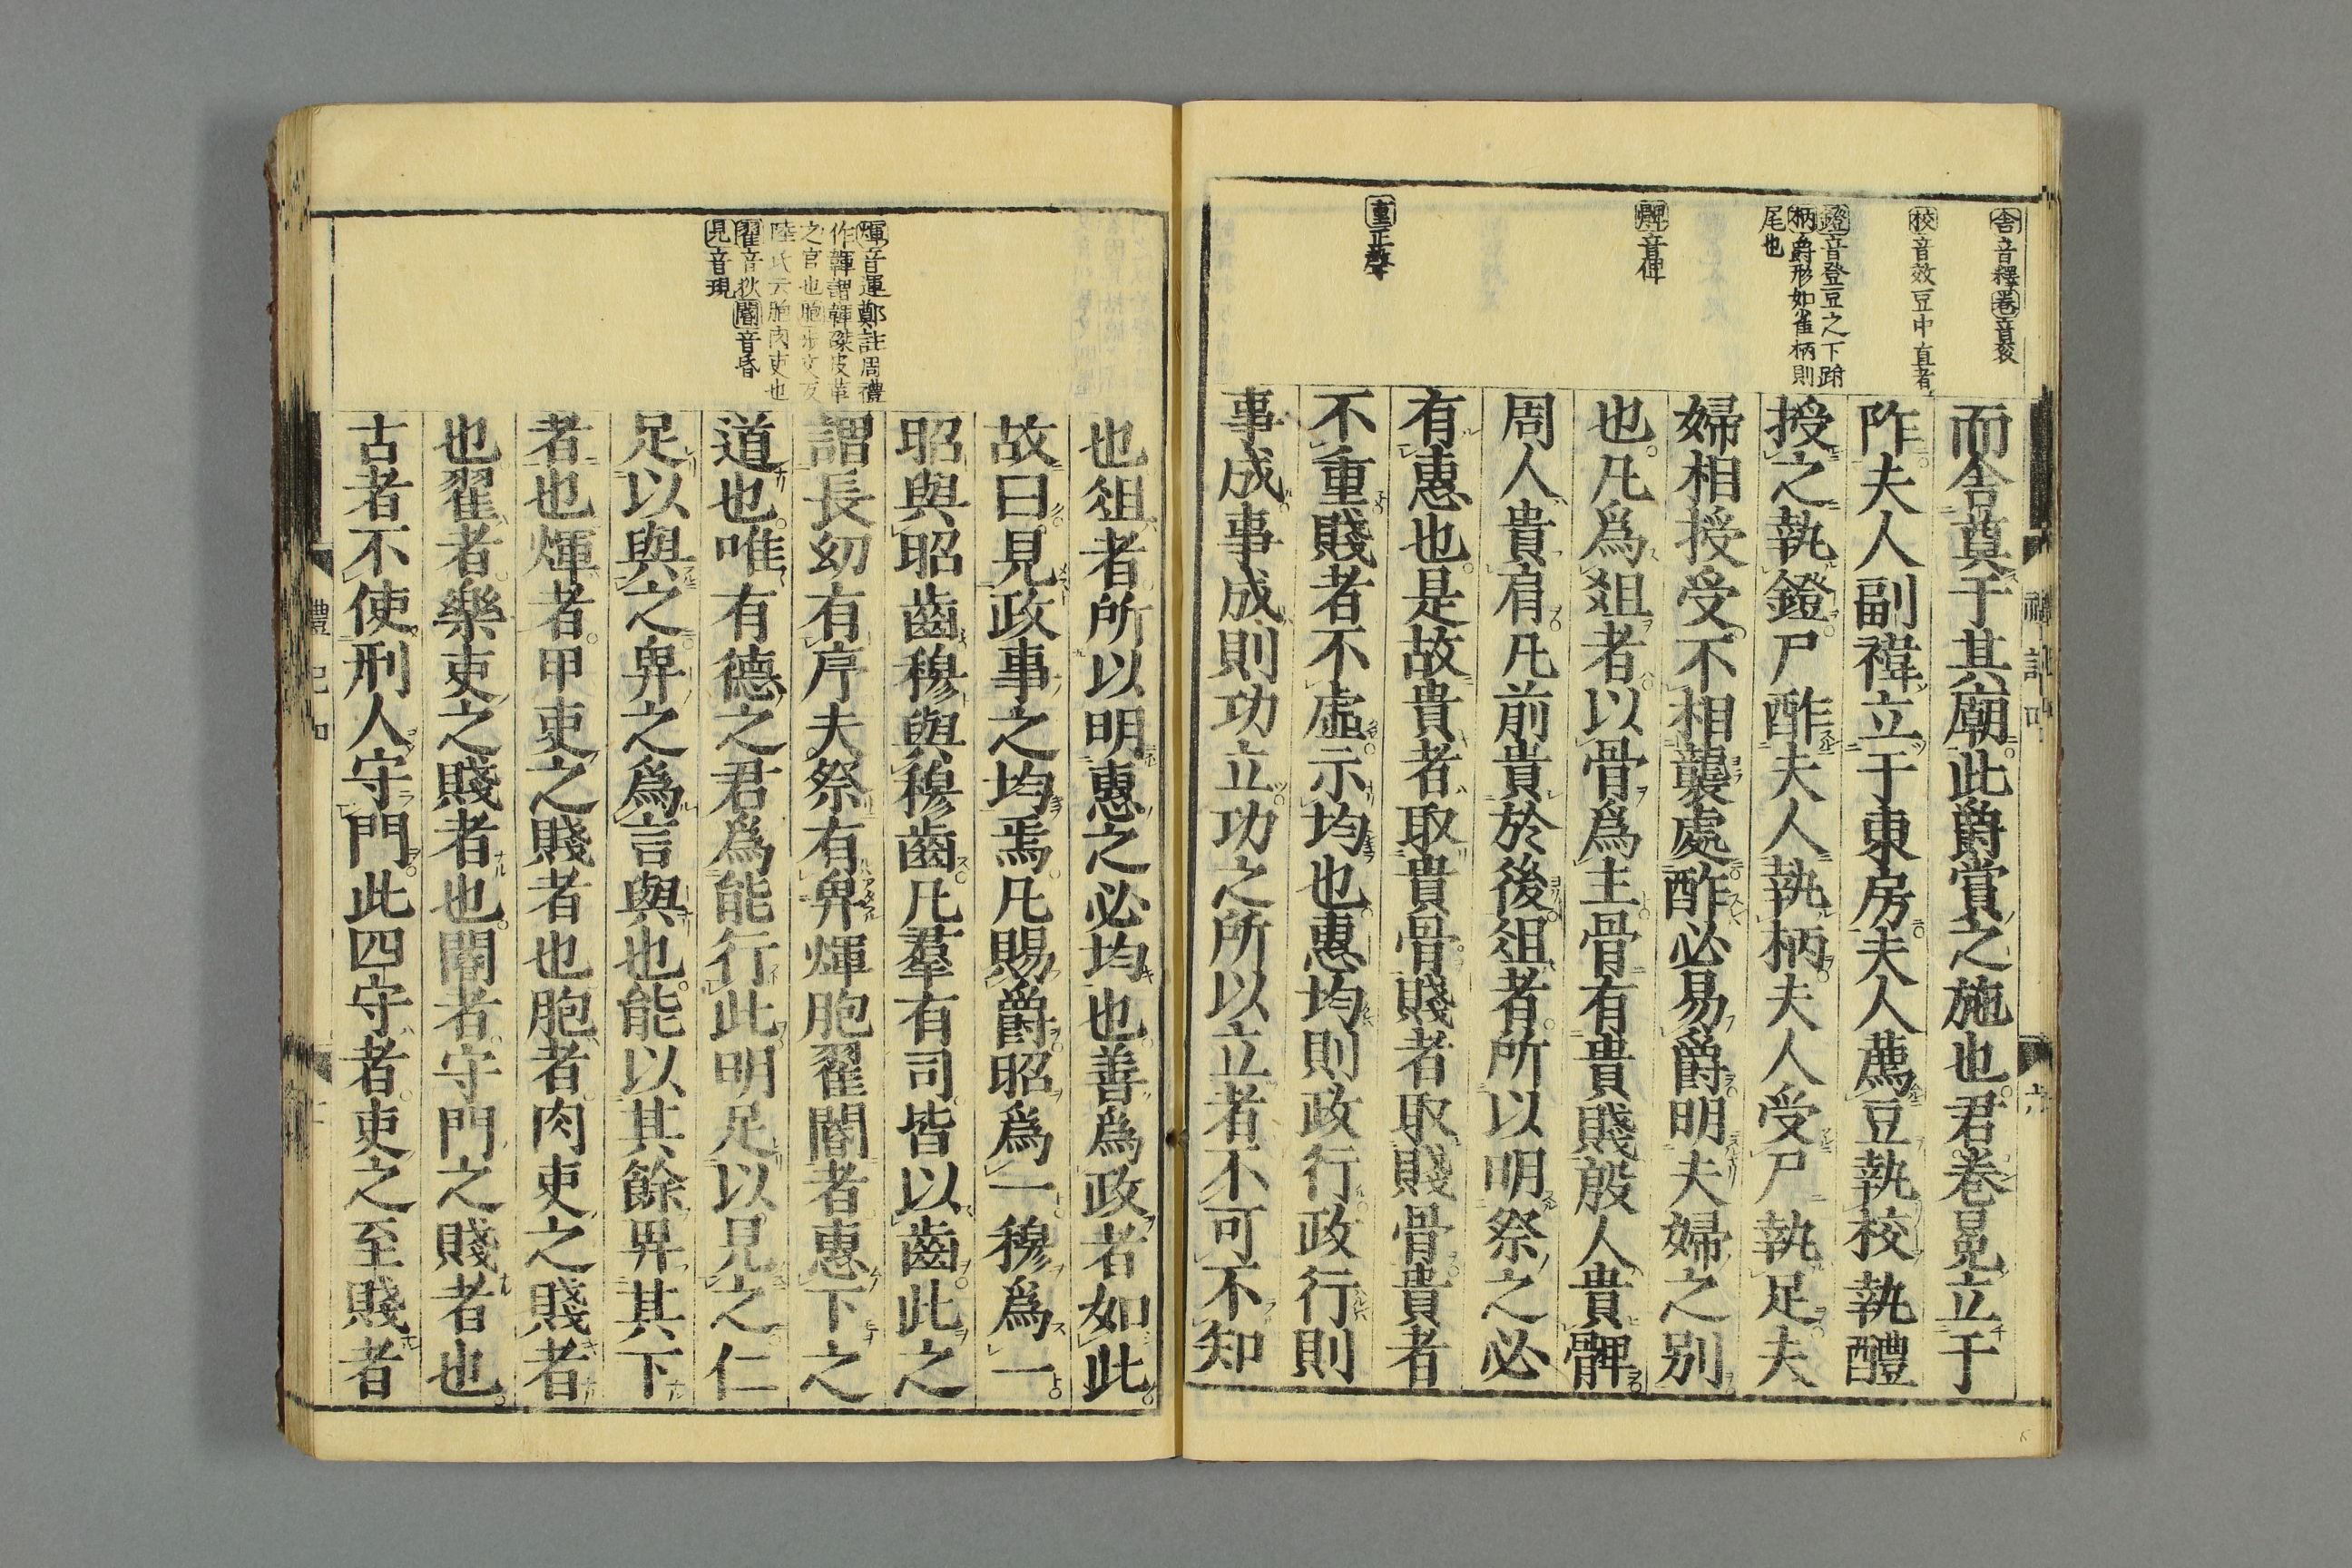 舎音釋巻音袞
校音效豆中直者
鐙音登豆之下跗
柄爵形如雀柄則
尾也
髀音俾
重正聲
而舎奠于其廟此爵賞之施也君巻冕立于
阼夫人副褘立于東房夫人薦豆執校執醴
授之執鐙尸酢夫人執柄夫人受尸執足夫
婦相授受不相襲處酢必易爵明夫婦之別
也凡爲俎者以骨爲主骨有貴賤殷人貴髀
周人貴肩凡前貴於後俎者所以明祭之必
有惠也是故貴者取貴骨賤者取賤骨貴者
不重賤者不虛示均也惠均則政行政行則
事成事成則功立功之所以立者不可不知
煇音運鄭註周禮
作韗謂韗磔皮革
之官也胞步交反
陸氏云胞肉吏也
翟音狄閽音昏
見音現
也俎者所以明惠之必均也善爲政者如此
故曰見政事之均焉凡賜爵昭爲一穆爲一
昭與昭齒穆與穆齒凡羣有司皆以齒此之
謂長幼有序夫祭有畀煇胞翟閽者惠下之
道也唯有德之君爲能行此明足以見之仁
足以與之畀之爲言與也能以其餘畀其下
者也煇者甲吏之賤者也胞者肉吏之賤者
也翟者樂吏之賤者也閽者守門之賤者也
古者不使刑人守門此四守者吏之至賤者
禮記四